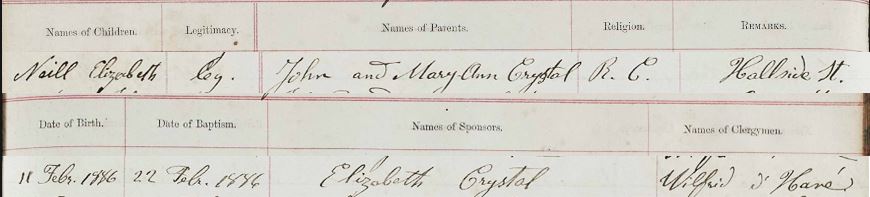 Names of Children. Legitimacy. Names of Parents. Religion. REMARKS.
Neill Elizabeth Leg. John and Mary Ann Crystal R. C. Hallside St.
Date of Birth. Date of Baptism. Names of Sponsors. Names of Clergymen.
11 Febr. 1886 22 Febr. 1886 Elizabeth Crystal Wilfrid d'Havé